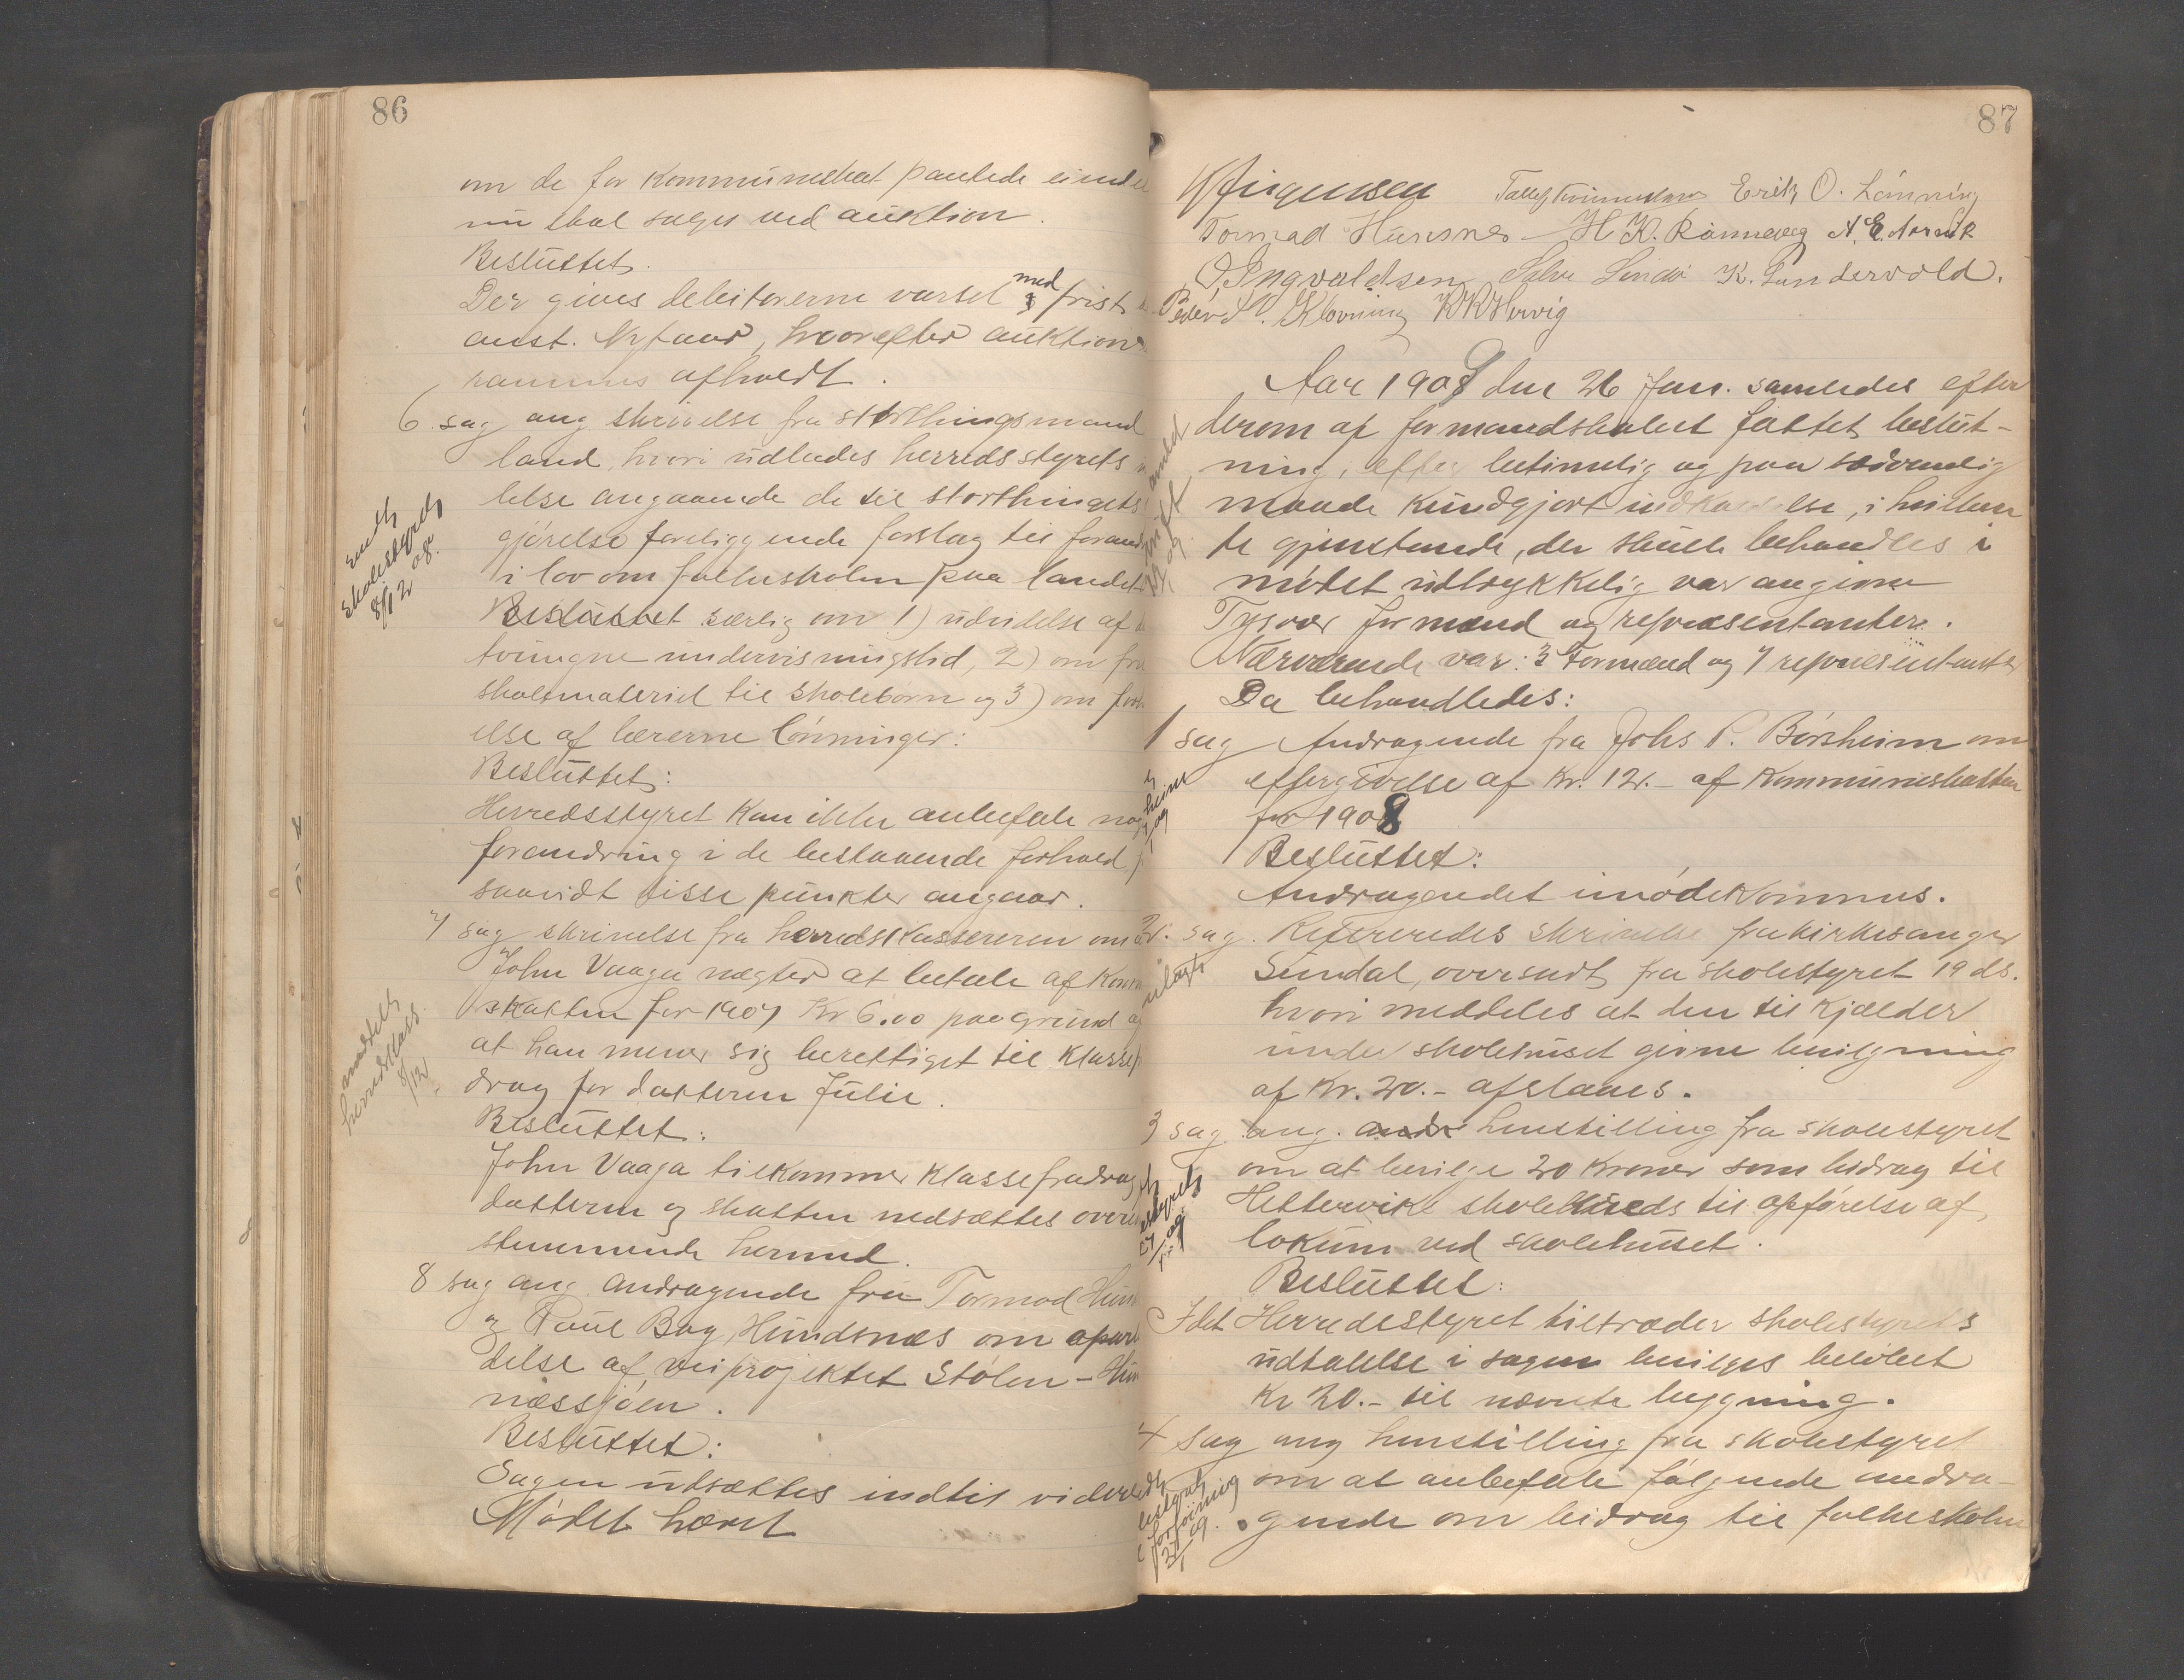 86
om de for Kommuneskat pantede eiendele
nu skal sælges ved auktion.
Besluttet.
Der gives debitorerne varsel med frist
anst. Nytaar, hvorefter auktion
rammes afholdt.
6 sag ang skrivelse fra storthingsmand
land, hvori udbedes herredsstyrets
telse angaaende de til storthingets
gjörelse foreliggende forslag til forand
i lov om folkeskolen paa landet
Besluttet særlig om 1) udvidelse af
tvungne undervisningstid, 2) om fri
skolemateriel til skolebörn og 3) om forh
else af lærerne lönninger:
Besluttet:
Herredsstyret kan ikke anbefale nog
forandring i de bestaaende forhold,
saavidt disse punkter angaar.
7 sag skrivelse fra herredskassereren om
John Vaaga nægter at betale af Kom
skatten for 1907 Kr 6.00 paa grund af
at han mener sig berettiget til Klassef
drag for datteren Julie.
Besluttet:
John Vaaga tilkommer Klassefradrag
datteren og skatten nedsættes overens
stemmende hermed.
8 sag ang andragende fra Tormod Hun
og Paul Bag. Hundsnæs om oparb
delse af veiprojektet Stölen - Hun
næssjöen.
Besluttet:
Sagen utsættes indtil videre
Mödet hævet
Sendt
skolestyret
8/12 08.
anmeldt
herredskass.
8/12
87
Jörgensen Erik O. Lönning
Tormod Hunsnes H K. Rönnevig A. E. Aarvik
O. Ingvaldsen Salve Lindö K. Sundervold.
Peder S. Klovning K K Hervig
Aar 1908 den 26 Jan. samledes efter
derom af formandskabet fattet beslut-
ning, efter betimelig og paa sædvanlig
maade kundgjort indkaldelse, i hvilken
de gjenstande, der skulle behandles i
mödet udtrykkelig var angivne
Tysvær formænd og repræsentanter.
Nærværende var: 3 Formænd og 7 repræsentanter
Da behandledes:
1 sag Andragende fra Johs P. Börsheim om
eftergivelse af Kr. 12.- af Kommuneskatten
for 1908
Besluttet:
Andragendet imödekommes.
2. sag. Refereredes skrivelse fra kirkesanger
Sundal, oversendt fra skolestyret 19 ds.
hvori meddeles at den til Kjælder
under skolehuset givne bevilgning
af Kr. 20.- afslaaes.
3 sag ang. andr henstilling fra skolestyret
om at bevilge 20 Kroner som bidrag til
Hettervik skolekreds til opförelse af,
lokum ved skolehuset.
Besluttet:
Idet Herredsstyret tiltræder skolestyrets
udtalelse i sagen bevilges belöbet
Kr 20.- til nævnte bygning.
4 sag ang henstilling fra skolestyret
om at anbefale fölgende andra-
gende om bidrag til folkeskolen